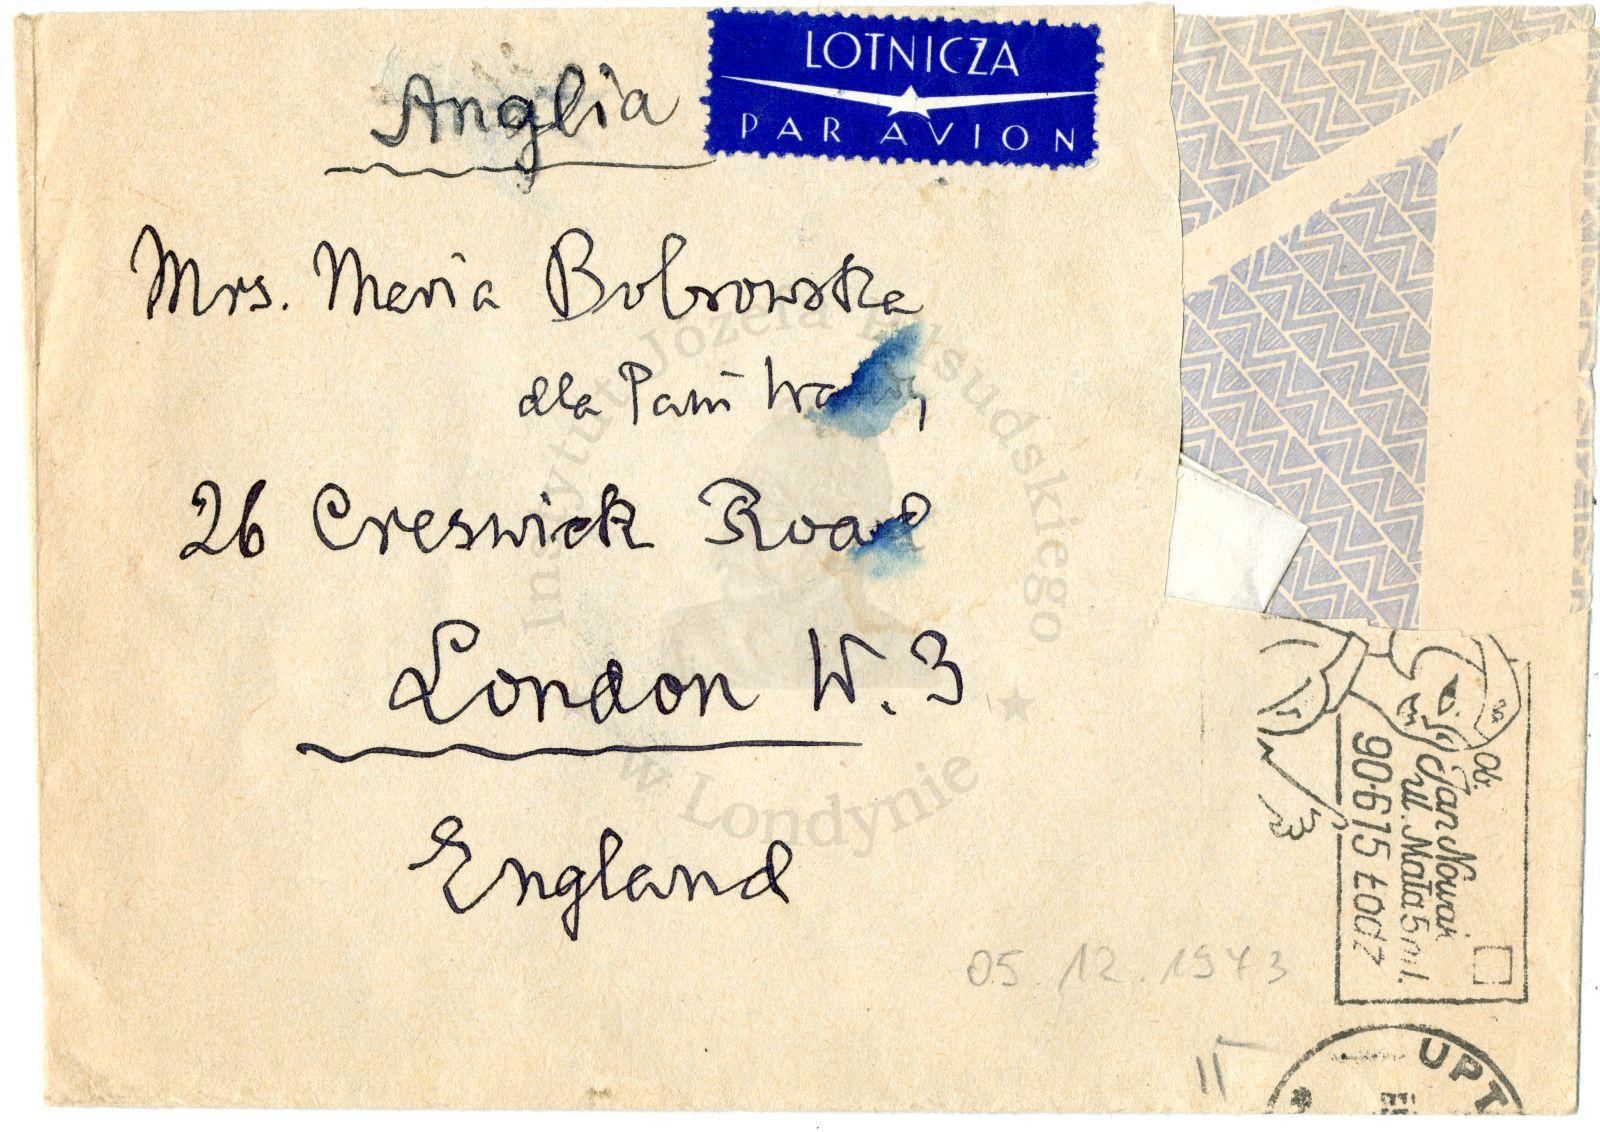 Anglia
LOTNICZA
PAR AVION
Mrs. Maria Bobrowska
dla Pani
26 Creswick Road
London W. 3
England
05. 12. 1973
II
Ob.
Jan Nowak
ul. Mała 5 m 1.
90-615 Łódź
UPT
Instytut Józefa Piłsudskiego
w Londynie